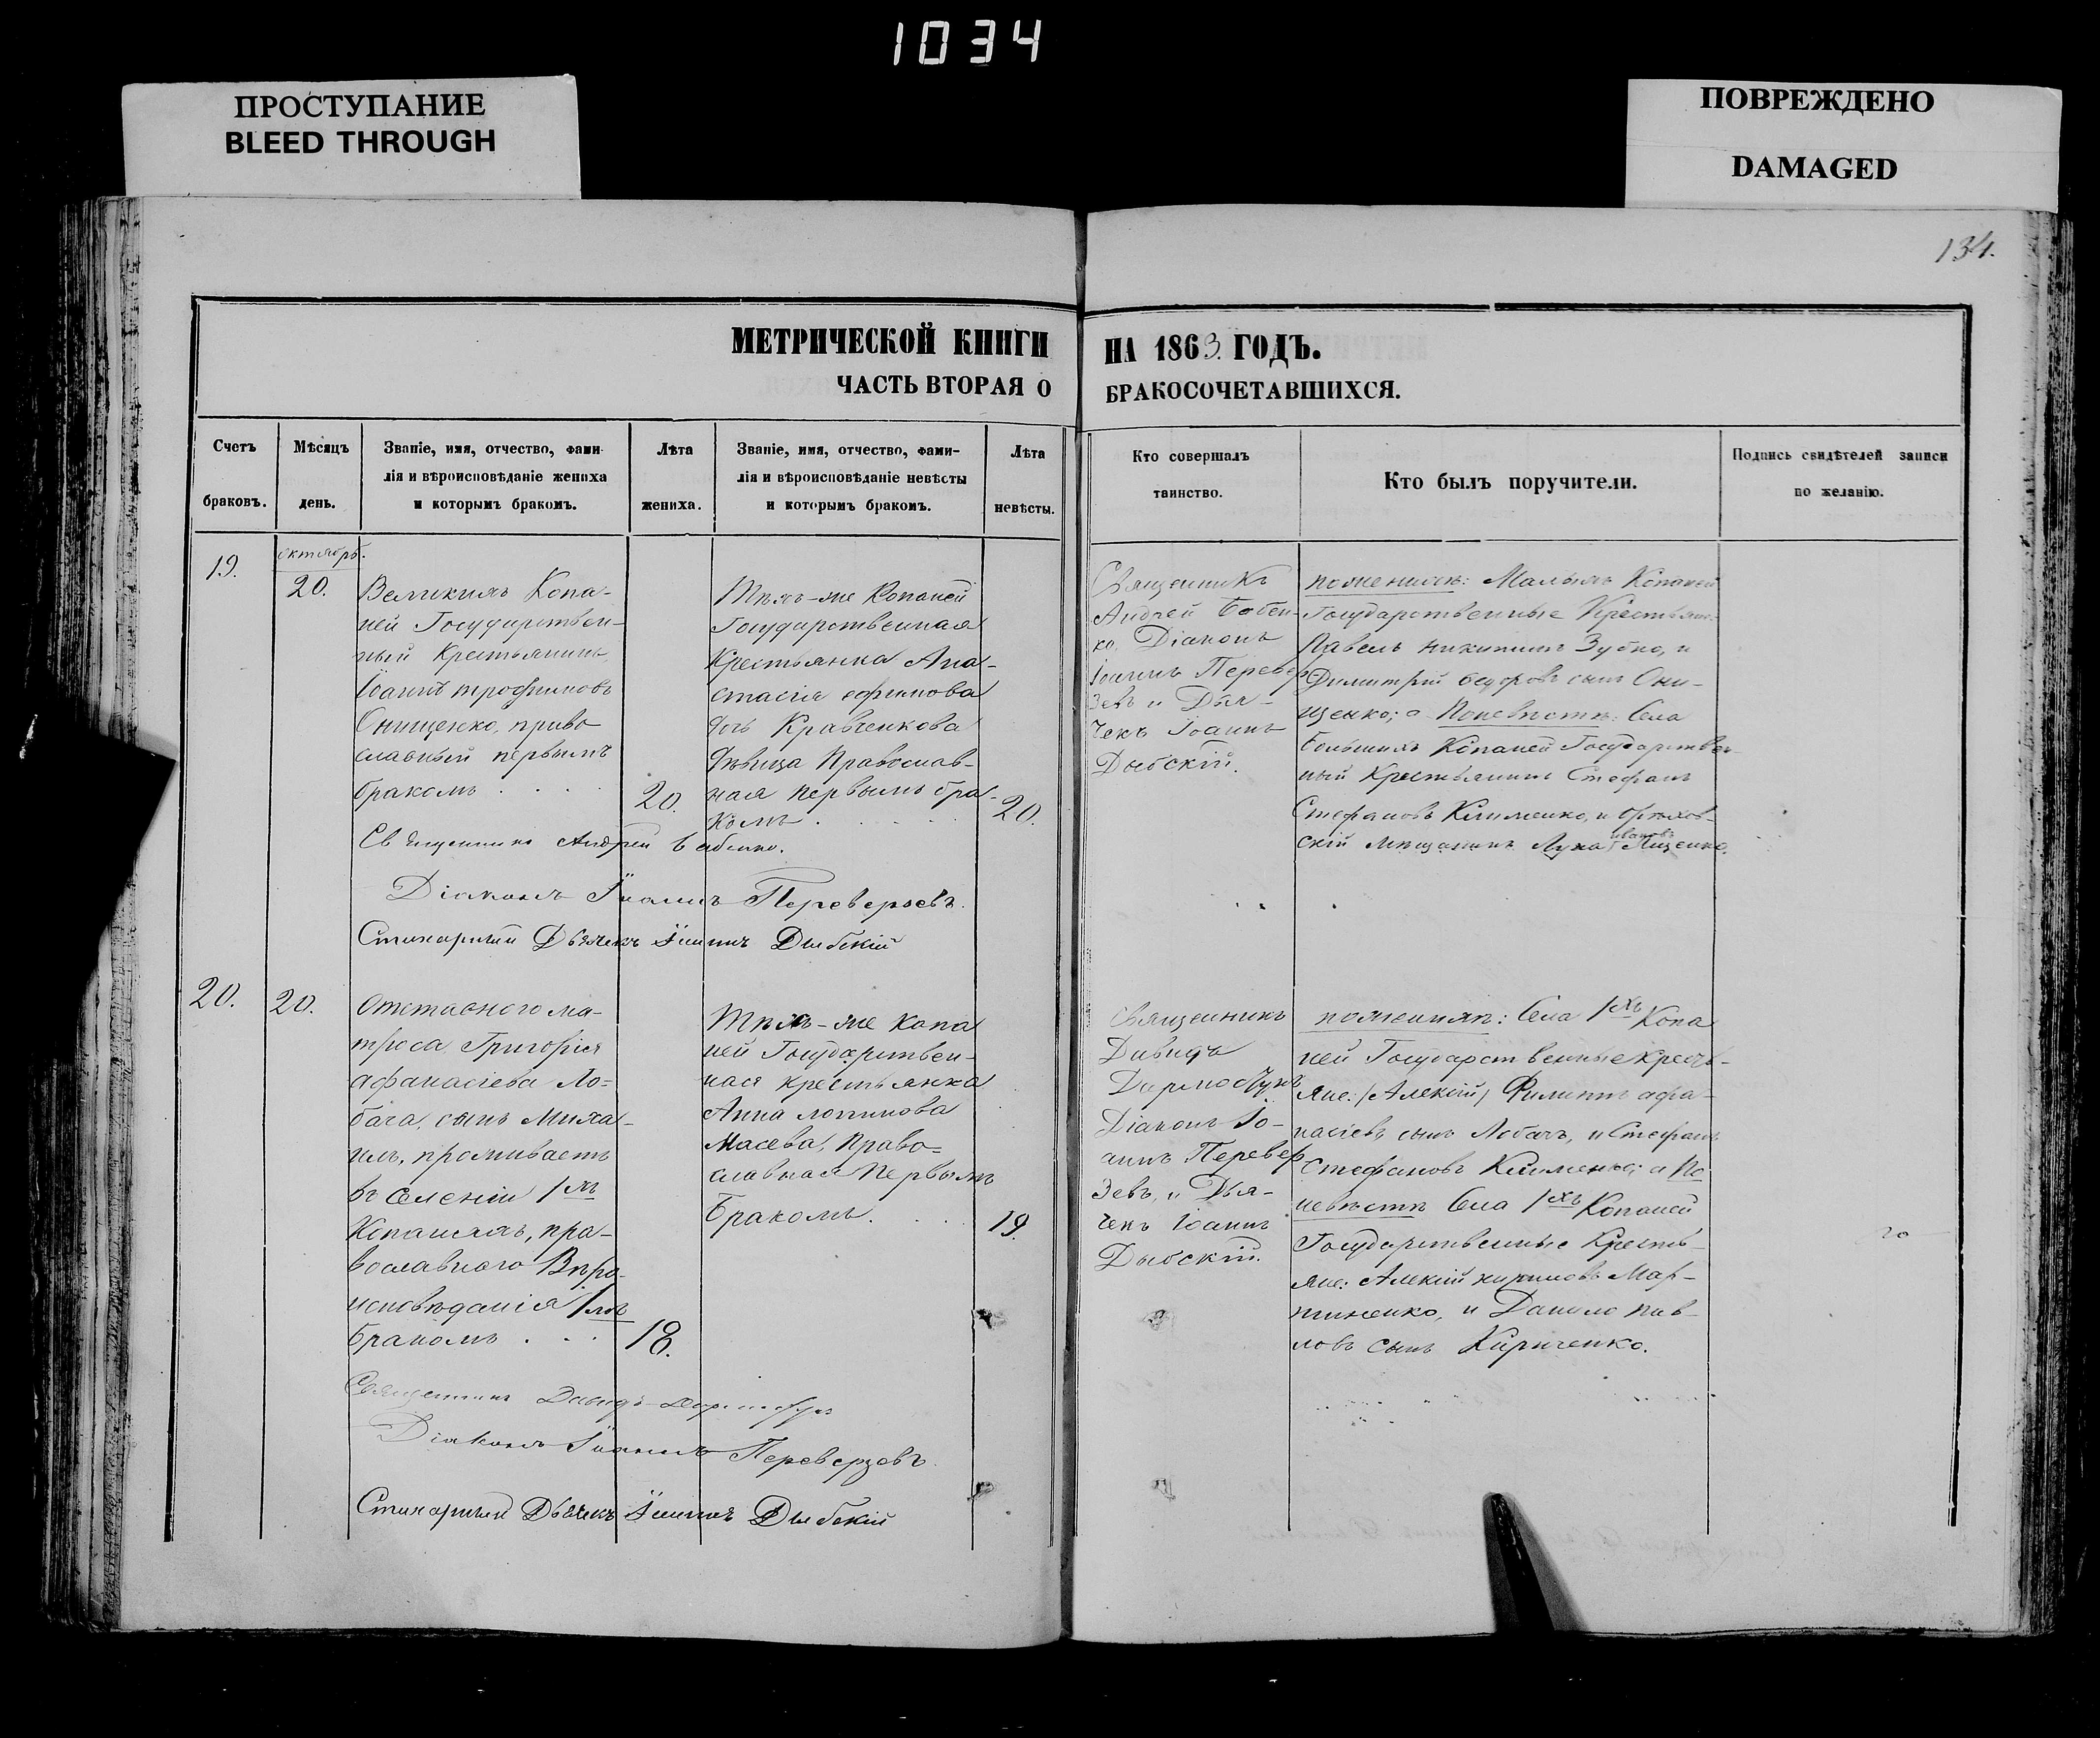 1034
ПРОСТУПАНИЕ
BLEED THROUGH
ПОВРЕЖДЕНО
DAMAGED
134.
МЕТРИЧЕСКОЙ КНИГИ НА 1863. ГОДЪ.
ЧАСТЬ ВТОРАЯ О БРАКОСОЧЕТАВШИХСЯ.
Счетъ
браковъ.
Мѣсяцъ
день.
Званіе, имя, отчество, фами-
лія и вѣроисповѣданіе жениха
и которымъ бракомъ.
Лѣта
жениха.
Званіе, имя, отчество, фами-
лія и вѣроисповѣданіе невѣсты
и которымъ бракомъ.
Лѣта
невѣсты.
Кто совершалъ
таинство.
Кто былъ поручители.
Подпись свидѣтелей записи
по желанію.
19.
октябрь.
20.
Великихъ Копа-
ней Государствен-
ный Крестьянинъ
Іоаннъ трофимовъ
Онищенко, право
славный первымъ
бракомъ
20.
Тѣхъ-же Копаней
Государственная
Крестьянка Ана-
стасія ефимова
дочь Кравченкова
дѣвица Православ-
ная первымъ бра-
комъ
20.
Священникъ
Андрей Бабен-
ко, Діаконъ
Іоаннъ Перевер
зевъ и Дья-
чекъ Іоаннъ
Дыбскій.
по женихѣ: Малыхъ Копаней
Государственные Крестьяне
Павелъ никитинъ Зубко, и
Димитрій ѳедоровъ сынъ Они-
щенко; а По невѣстѣ: Села
Большихъ Копаней Государствен-
ный Крестьянинъ Стефанъ
Стефановъ Клименко, и Орѣхов-
скій мѣщанинъ Лука ивановъ Пищенко.
Священникъ Андрей Бабенко.
Діаконъ Іоаннъ Переверзевъ.
Стихарный Дьячекъ Іоаннъ Дыбскій
20.
20.
Отставного ма-
троса Григорія
афанасіева Ло-
бача, сынъ Миха-
илъ, проживаетъ
въ Селеніи 1хъ
Копаняхъ, пра-
вославнаго Вѣро-
исповѣданія 1мъ
бракомъ
18.
Тѣхъ-же Копа
ней Государствен-
ная крестьянка
Анна логинова
Масева, Право-
славная Первымъ
Бракомъ.
19.
Священникъ
Давидъ
Діаконъ Іо-
аннъ Перевер
зевъ, и Дья-
чекъ Іоаннъ
Дыбскій.
по женихѣ: Села 1хъ Копа
ней Государственные кресть-
яне: (Алексій) Филиппъ афа-
насіевъ сынъ Лобачъ, и Стефанъ
Стефановъ Клименко; а По
невѣстѣ Села 1хъ Копаней
Государственные Кресть-
яне: Алексій Мар-
тиненко, и Данило пав-
ловъ сынъ Кириченко.
Священникъ Давидъ
Діаконъ Іоаннъ Переверзевъ.
Стихарный Дьячекъ Іоаннъ Дыбскій